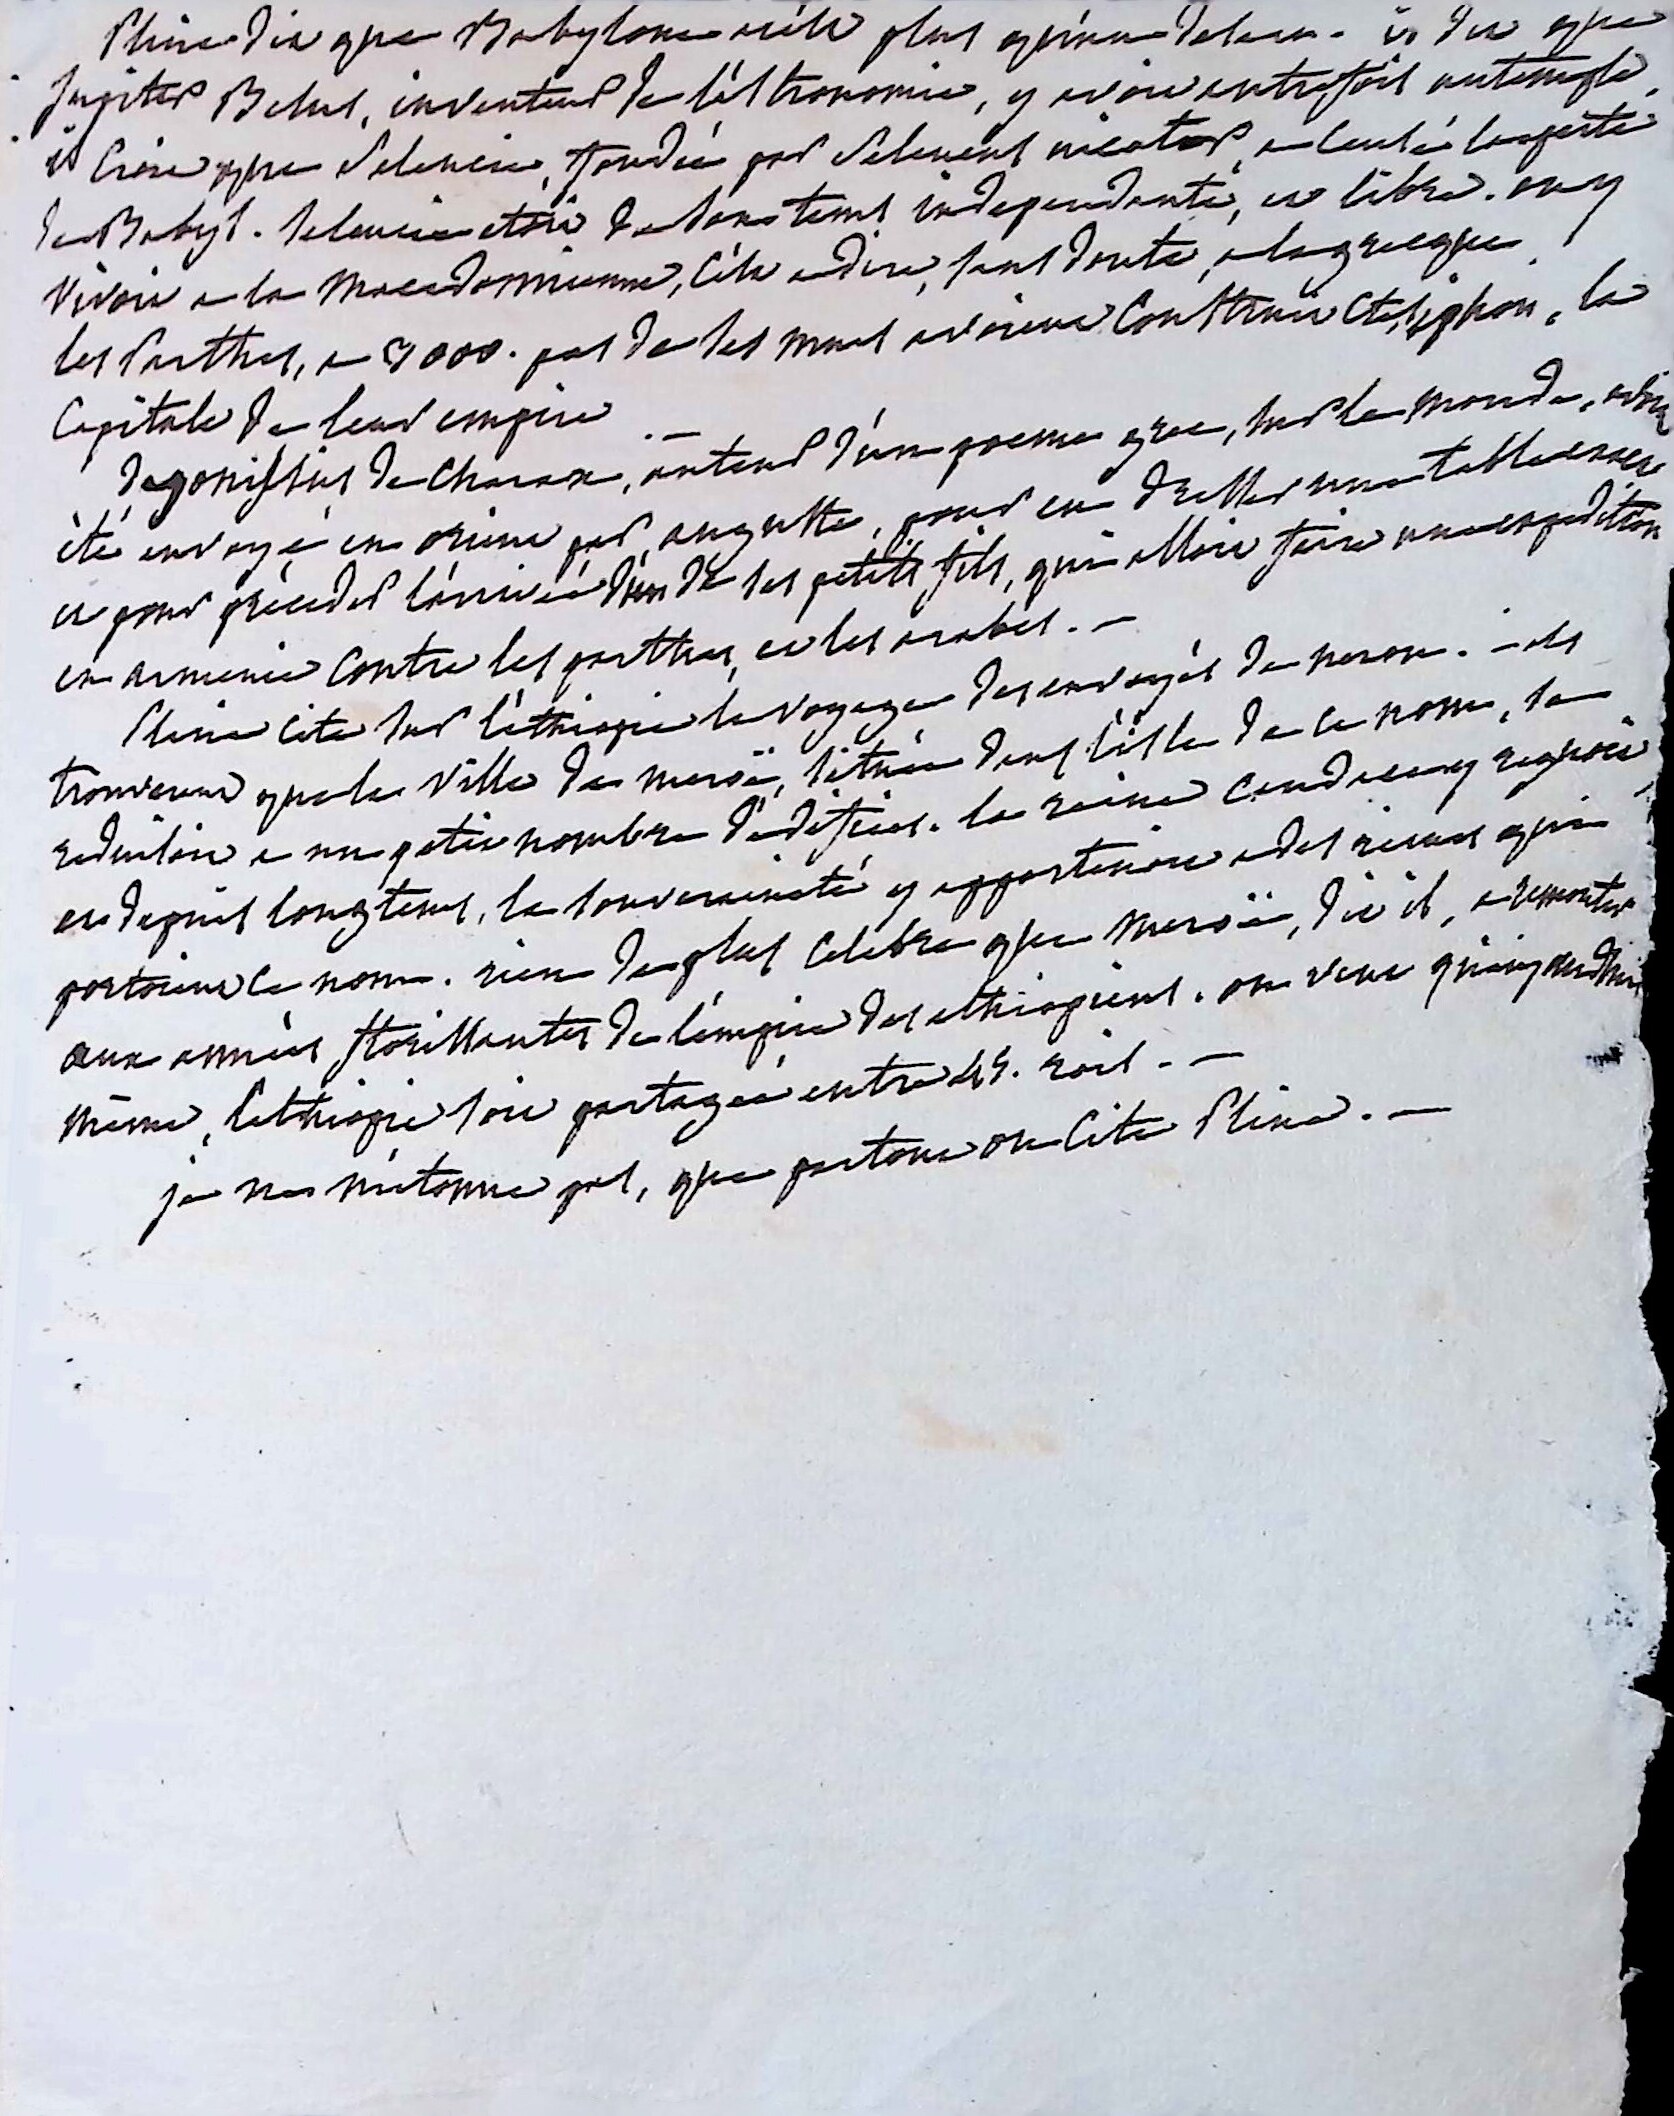 Pline dit que Babylone n'est plus qu'un desert. il dit que
Jupiter Belus, inventeur de l'astronomie, y avoit autrefois un temple.
il croit que Seleucie, fondée par Seleucus nicator, a causé la perte
de Babyl. Seleucie etoit de son tems independante, et libre. on y
vivoit a la Macedonienne, c'est a dire, sans doute, a la grecque.
les Parthes, a 3000. pas de ses murs avoient construit Ctesiphon, la
capitale de leur empire. —
de Charax, auteur d'un poeme grec, sur le monde, avoit
été envoyé en orient par auguste, pour en dresser une table exacte
et pour préceder l'arrivée d'un de ses petits fils, qui alloit faire une expedition
en armenie contre les parthes, et les arabes. —
Pline cite sur l'éthiopie le voyage des envoyés de neron. - ils
trouverent que la ville de meroë, située dans l'isle de ce nom, se
reduisoit a un petit nombre d'édifices. la reine candace y regnoit,
et depuis longtems, la souveraineté y appartenoit a des reines qui
portoient ce nom. rien de plus celebre que Meroë, dit il, a remonter
aux années florissantes de l'empire des ethiopiens. on veut qu'aujourdhui
même, l'ethiopie soit partagée entre 45. rois. —
je ne m'étonne pas, que partout on cite Pline. —